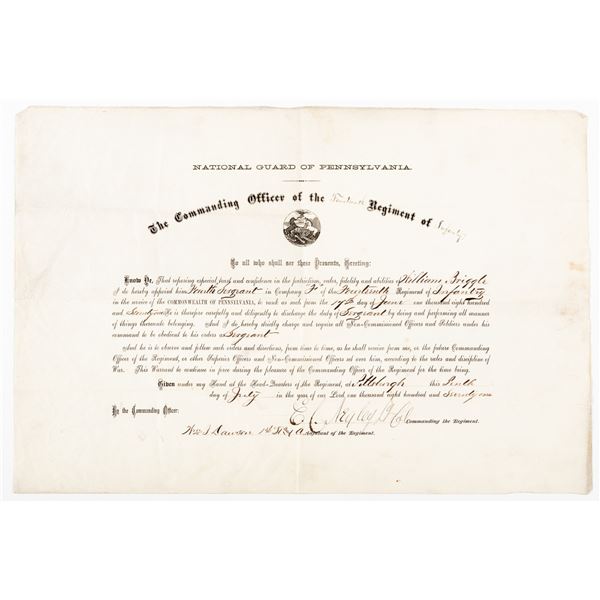 NATIONAL GUARD OF PENNSYLVANIA.
The Commanding Officer of the Regiment of Infantry
To all who shall see these Presents, Greeting:
Know Ye, That reposing especial trust and confidence in the patriotism, valor, fidelity and abilities William Briggle
I do hereby appoint him Fourth Sergeant in Company F of the Regiment of Infantry
in the service of the COMMONWEALTH OF PENNSYLVANIA, to rank as such from the 17th day of June one thousand eight hundred
and He is therefore carefully and diligently to discharge the duty of Sergeant by doing and performing all manner
of things thereunto belonging. And I do hereby strictly charge and require all Non-Commissioned Officers and Soldiers under his
command to be obedient to his orders as Sergeant
And he is to observe and follow such orders and directions, from time to time, as he shall receive from me, or the future Commanding
Officer of the Regiment, or other Superior Officers and Non-Commissioned Officers set over him, according to the rules and discipline of
War. This Warrant to continue in force during the pleasure of the Commanding Officer of the Regiment for the time being.
Given under my Hand at the Head-Quarters of the Regiment, at Pittsburgh this Tenth
day of July in the year of our Lord, one thousand eight hundred and Seventy one
By the Commanding Officer:
Commanding the Regiment.
Dawson 1st Adjutant of the Regiment.